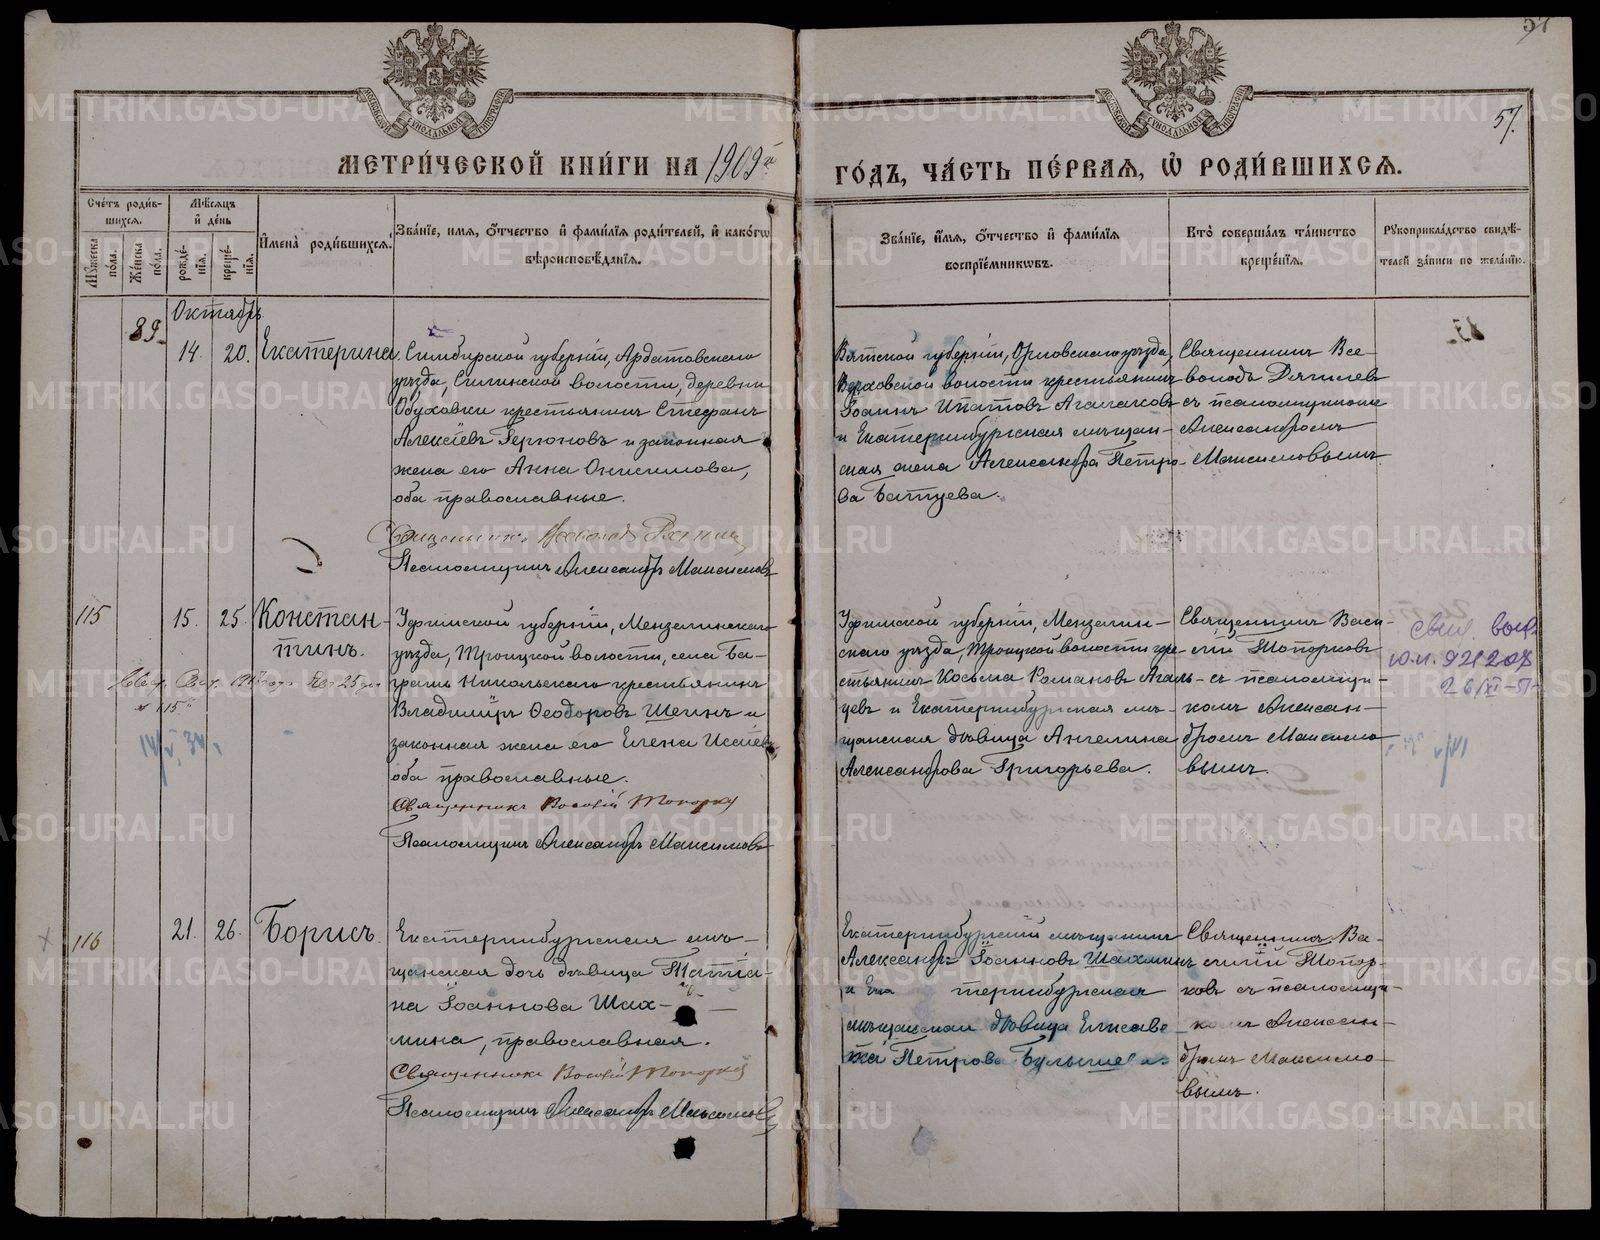 57
57.
МОСКОВСКОЙ СУНОДАЛЬНОЙ ТИПОГРАФІИ
МОСКОВСКОЙ СУНОДАЛЬНОЙ ТИПОГРАФІИ
МЕТРИ́ЧЕСКОЙ КНИ́ГИ НА 1909й
ГО́ДЪ, ЧА́СТЬ ПЕ́РВАЯ, Ѡ҆ РОДИ́ВШИХСЯ.
Сче́тъ роди́в-
шихся.
Мѣ́сяцъ
и҆ де́нь
Му́жеска по́ла.
Же́нска по́ла.
рожде́-
нїя.
креще́-
нїя.
И҆мена̀ роди́вшихся.
Зва́нїе, имя, ѻ҆́тчество и҆ фами́лїя роди́телей, и҆ како́гѡ
вѣроисповѣ́данїя.
Зва́нїе, и҆́мя, ѻ҆́тчество и҆ фами́лїя
воспрїе́мникѡвъ.
Кто̀ соверша́лъ та́инство
креще́нїя.
Рꙋкоприкла́дство свидѣ́-
телей за́писи по жела́нїю.
Октябрь
89.
14.
20.
Екатерина.
Симбирской губерніи, Ардатовскаго
уѣзда, Силинской волости, деревни
Обуховки крестьянинъ Стефанъ
Алексѣевъ Герюновъ и законная
жена его Анна Онисимова,
оба православные.
Священникъ Всеволодъ
Псаломщикъ Александръ Максимовъ
Вятской губерніи, Орловскаго уѣзда,
Верховской волости крестьянинъ
Іоаннъ Ипатовъ Агалаковъ
и Екатеринбургская мѣщан-
ская жена Александра Петро-
ва Батуева.
Священникъ Все-
володъ Дягилевъ
съ псаломщикомъ
Александромъ
Максимовымъ.
115
15.
25.
Констан-
тинъ.
Уфимской губерніи, Мензелинскаго
уѣзда, Троицкой волости, села Ба-
грашъ Никольскаго крестьянинъ
Владиміръ Ѳеодоровъ Шеинъ и
законная жена его Елена Исаіев
оба православные.
Священникъ Василій Топорк
Псаломщикъ Александръ Максимовъ
№ 115
Уфимской губерніи, Мензелин-
скаго уѣзда, Троицкой волости кре-
стьянинъ Косьма Романовъ Агаль-
цевъ и Екатеринбургская мѣ-
щанская дѣвица Ангелина
Александрова Григорьева.
Священникъ Васи-
лій Топорковъ
съ псаломщи-
комъ Алексан-
дромъ Максимо-
вымъ.
116
21.
26.
Борисъ.
Екатеринбургская мѣ-
щанская дочь дѣвица Татіа-
на Іоаннова Шах-
мина, православная.
Священникъ Василій Топорков
Псаломщикъ Александръ Максимовъ
Екатеринбургскій мѣщанинъ
Александръ Іоанновъ Шахминъ
и Ека теринбургская
мѣщанская дѣвица Елисаве-
та Петрова Булышева.
Священникъ Ва-
силій Топор-
ковъ съ псаломщи-
комъ Алексан-
дромъ Максимо-
вымъ.
METRIKI.GASO-URAL.RU